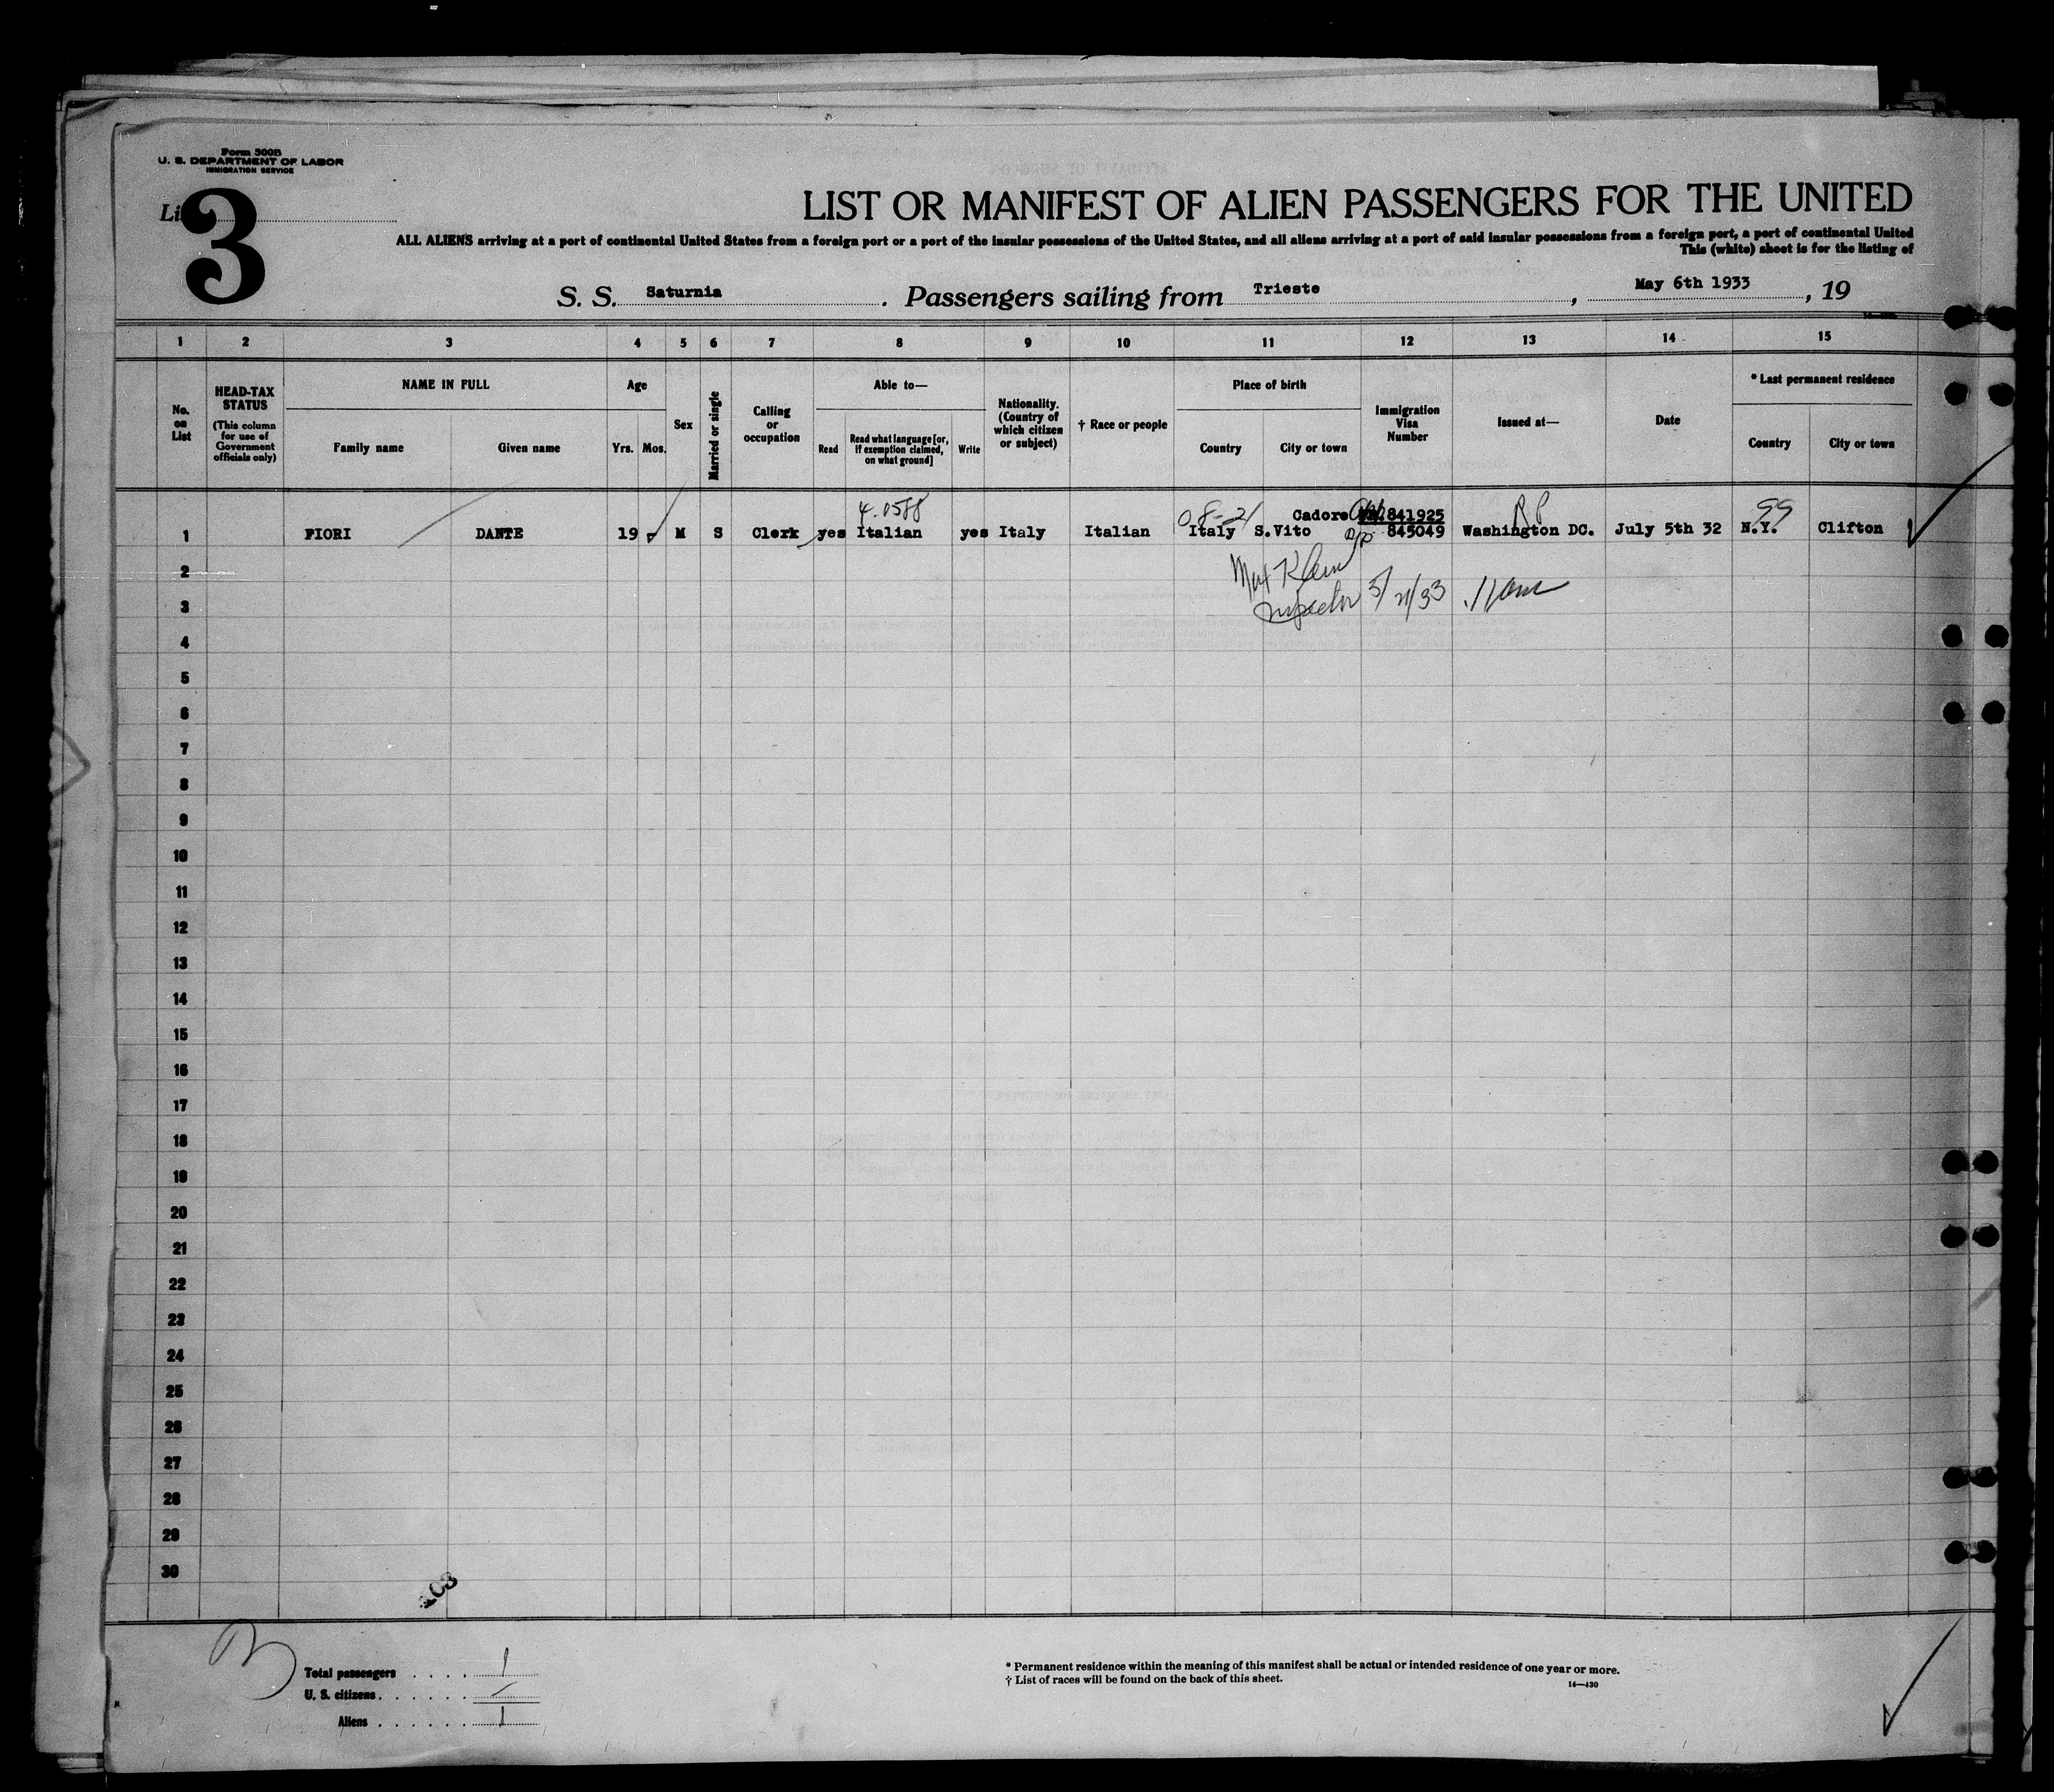 Form 500B
U. S. DEPARTMENT OF LABOR
IMMIGRATION SERVICE
3
LIST OR MANIFEST OF ALIEN PASSENGERS FOR THE UNITED
ALL ALIENS arriving at a port of continental United States from a foreign port or a port of the insular possessions of the United States, and all aliens arriving at a port of said insular possessions from a foreign port, a port of continental United
This (white) sheet is for the listing of
S. S. Saturnia. Passengers sailing from Trieste, May 6th 1933, 19
1 2 3 4 5 6 7 8 9 10 11 12 13 14 15
No. on List
HEAD-TAX STATUS
(This column for use of Government officials only)
NAME IN FULL
Family name Given name
Age
Yrs. Mos.
Sex
Married or single
Calling or occupation
Able to—
Read
Read what language [or, if exemption claimed, on what ground]
Write
Nationality. (Country of which citizen or subject)
† Race or people
Place of birth
Country City or town
Immigration Visa Number
Issued at—
Date
* Last permanent residence
Country City or town
4-1588
Cadore 841925
99
1 FIORI DANTE 19 M S Clerk yes Italian yes Italy Italian Italy S.Vito 845049 Washington DC. July 5th 32 N.Y. Clifton
2
Inspector
3
4
5
6
7
8
9
10
11
12
13
14
15
16
17
18
19
20
21
22
23
24
25
26
27
28
29
30
Total passengers . . . . 1
U. S. citizens . . . . . . –
Aliens . . . . . . 1
* Permanent residence within the meaning of this manifest shall be actual or intended residence of one year or more.
† List of races will be found on the back of this sheet.
14—430